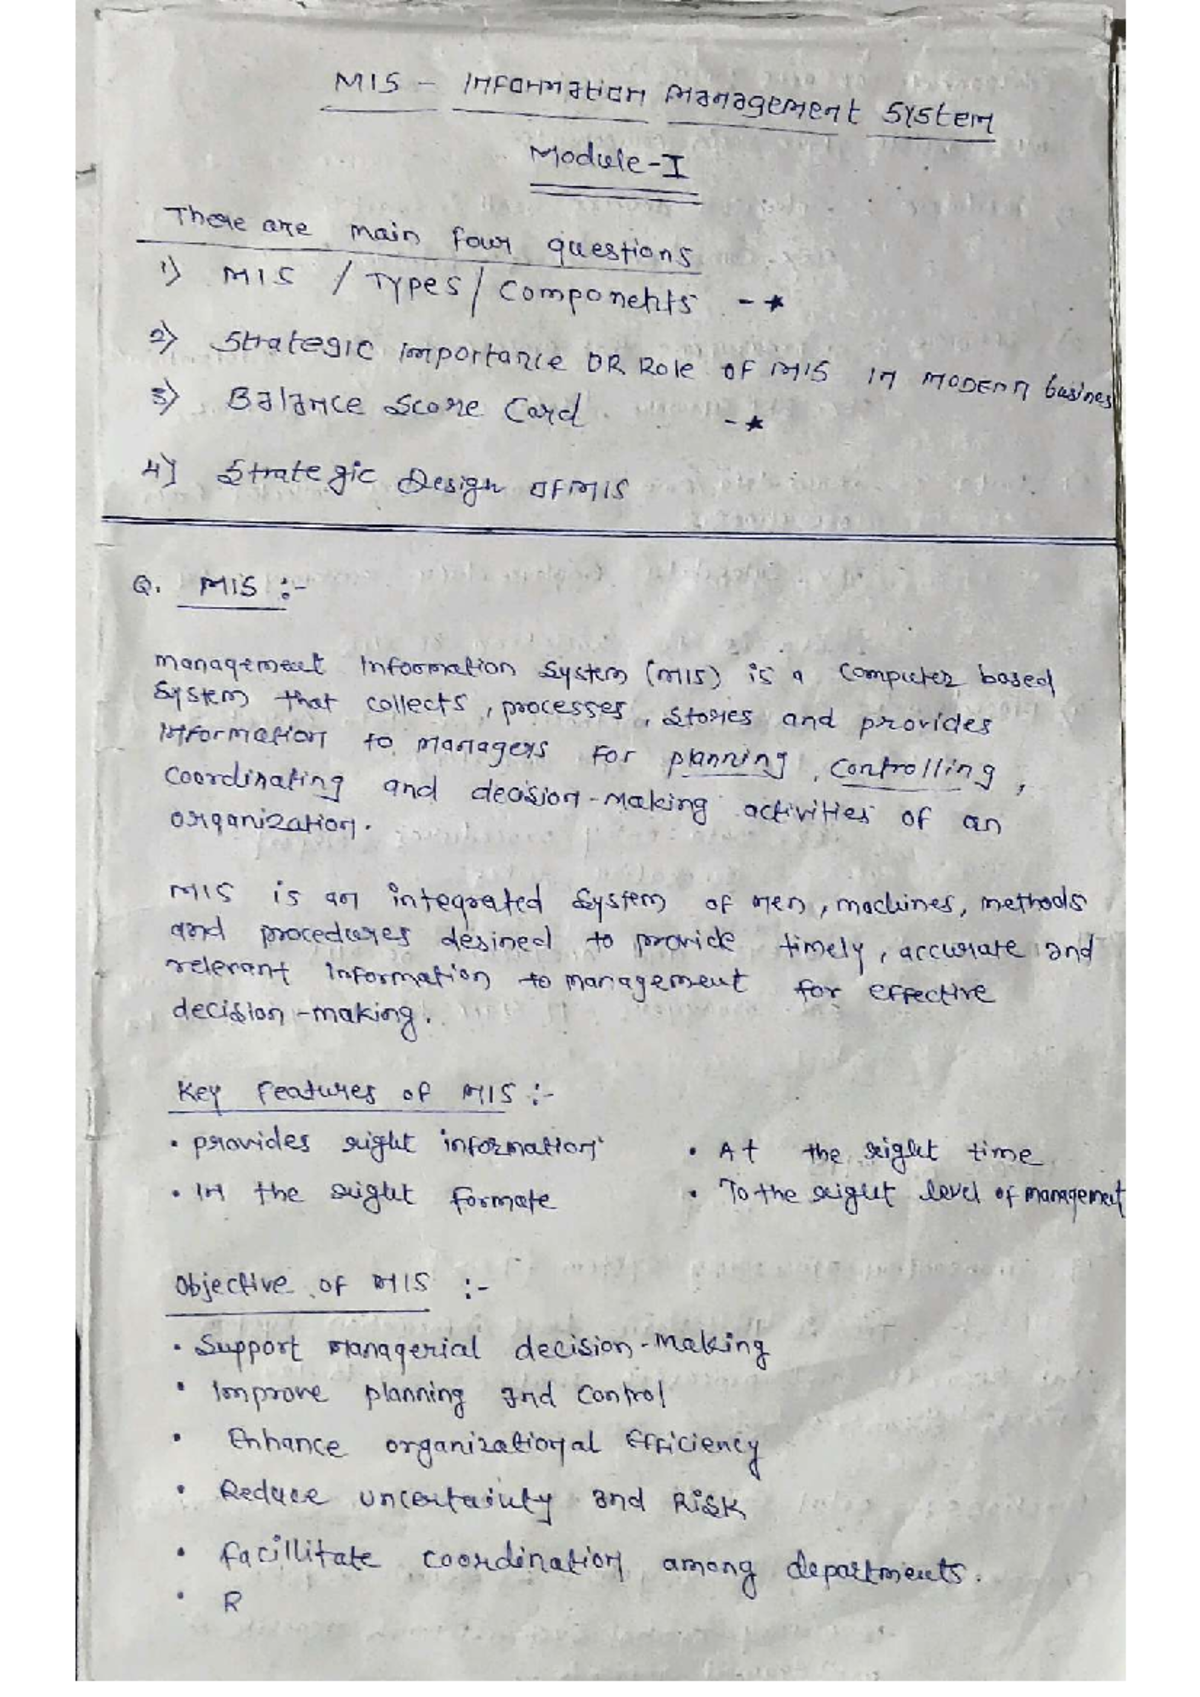 MIS - Information Management System
Module-I
There are main four questions
1) MIS / Types / Components -★
2) Strategic Importance OR Role of MIS in MODERN busines
3) Balance Score Card -★
4) Strategic Design of MIS
Q. MIS :-
Management Information System (MIS) is a computer based
System that collects, processes, stores and provides
Information to managers for planning, controlling,
coordinating and decision-making activities of an
organization.
MIS is an integrated system of men, machines, methods
and procedures desined to provide timely, accurate and
relevant information to management for effective
decision-making.
Key Features of MIS :-
• provides right information • At the right time
• In the right formate • To the right level of management
Objective of MIS :-
• Support Managerial decision-making
• Improve planning and control
• Enhance organizational Efficiency
• Reduce uncertainty and Risk
• facillitate coordination among departments.
• R